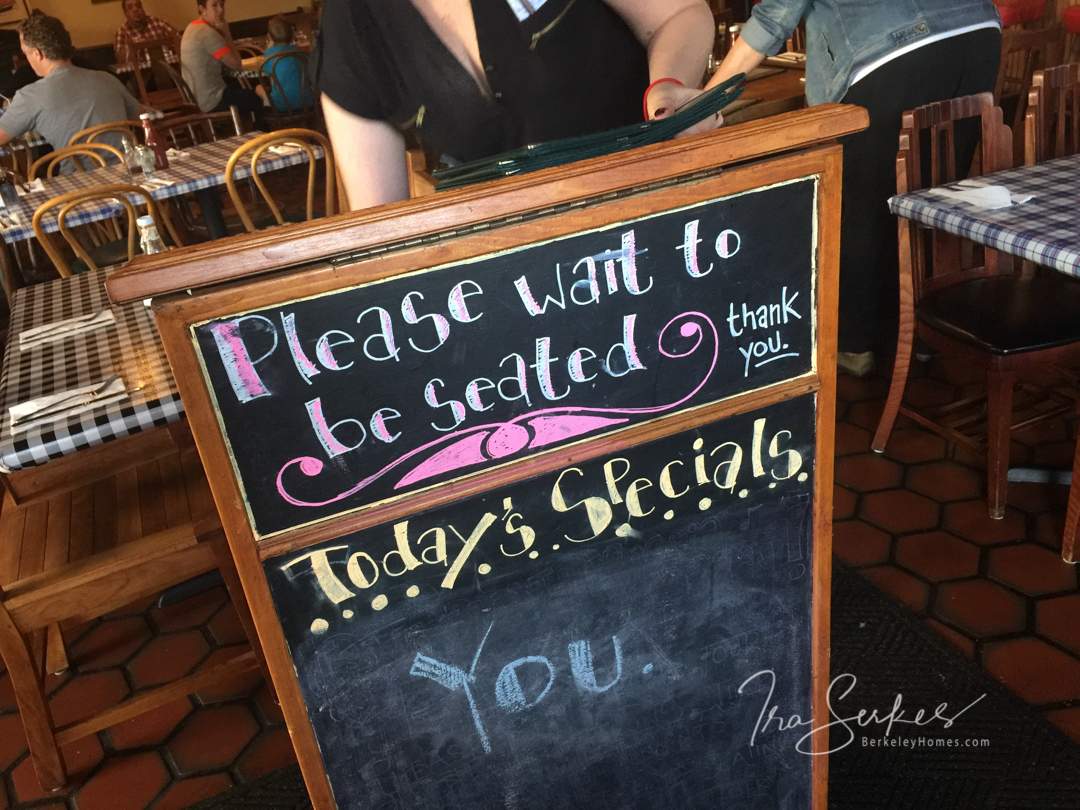 Please wait to
be seated
thank
you.
Today's Specials.
You.
Ira Serkes
BerkeleyHomes.com